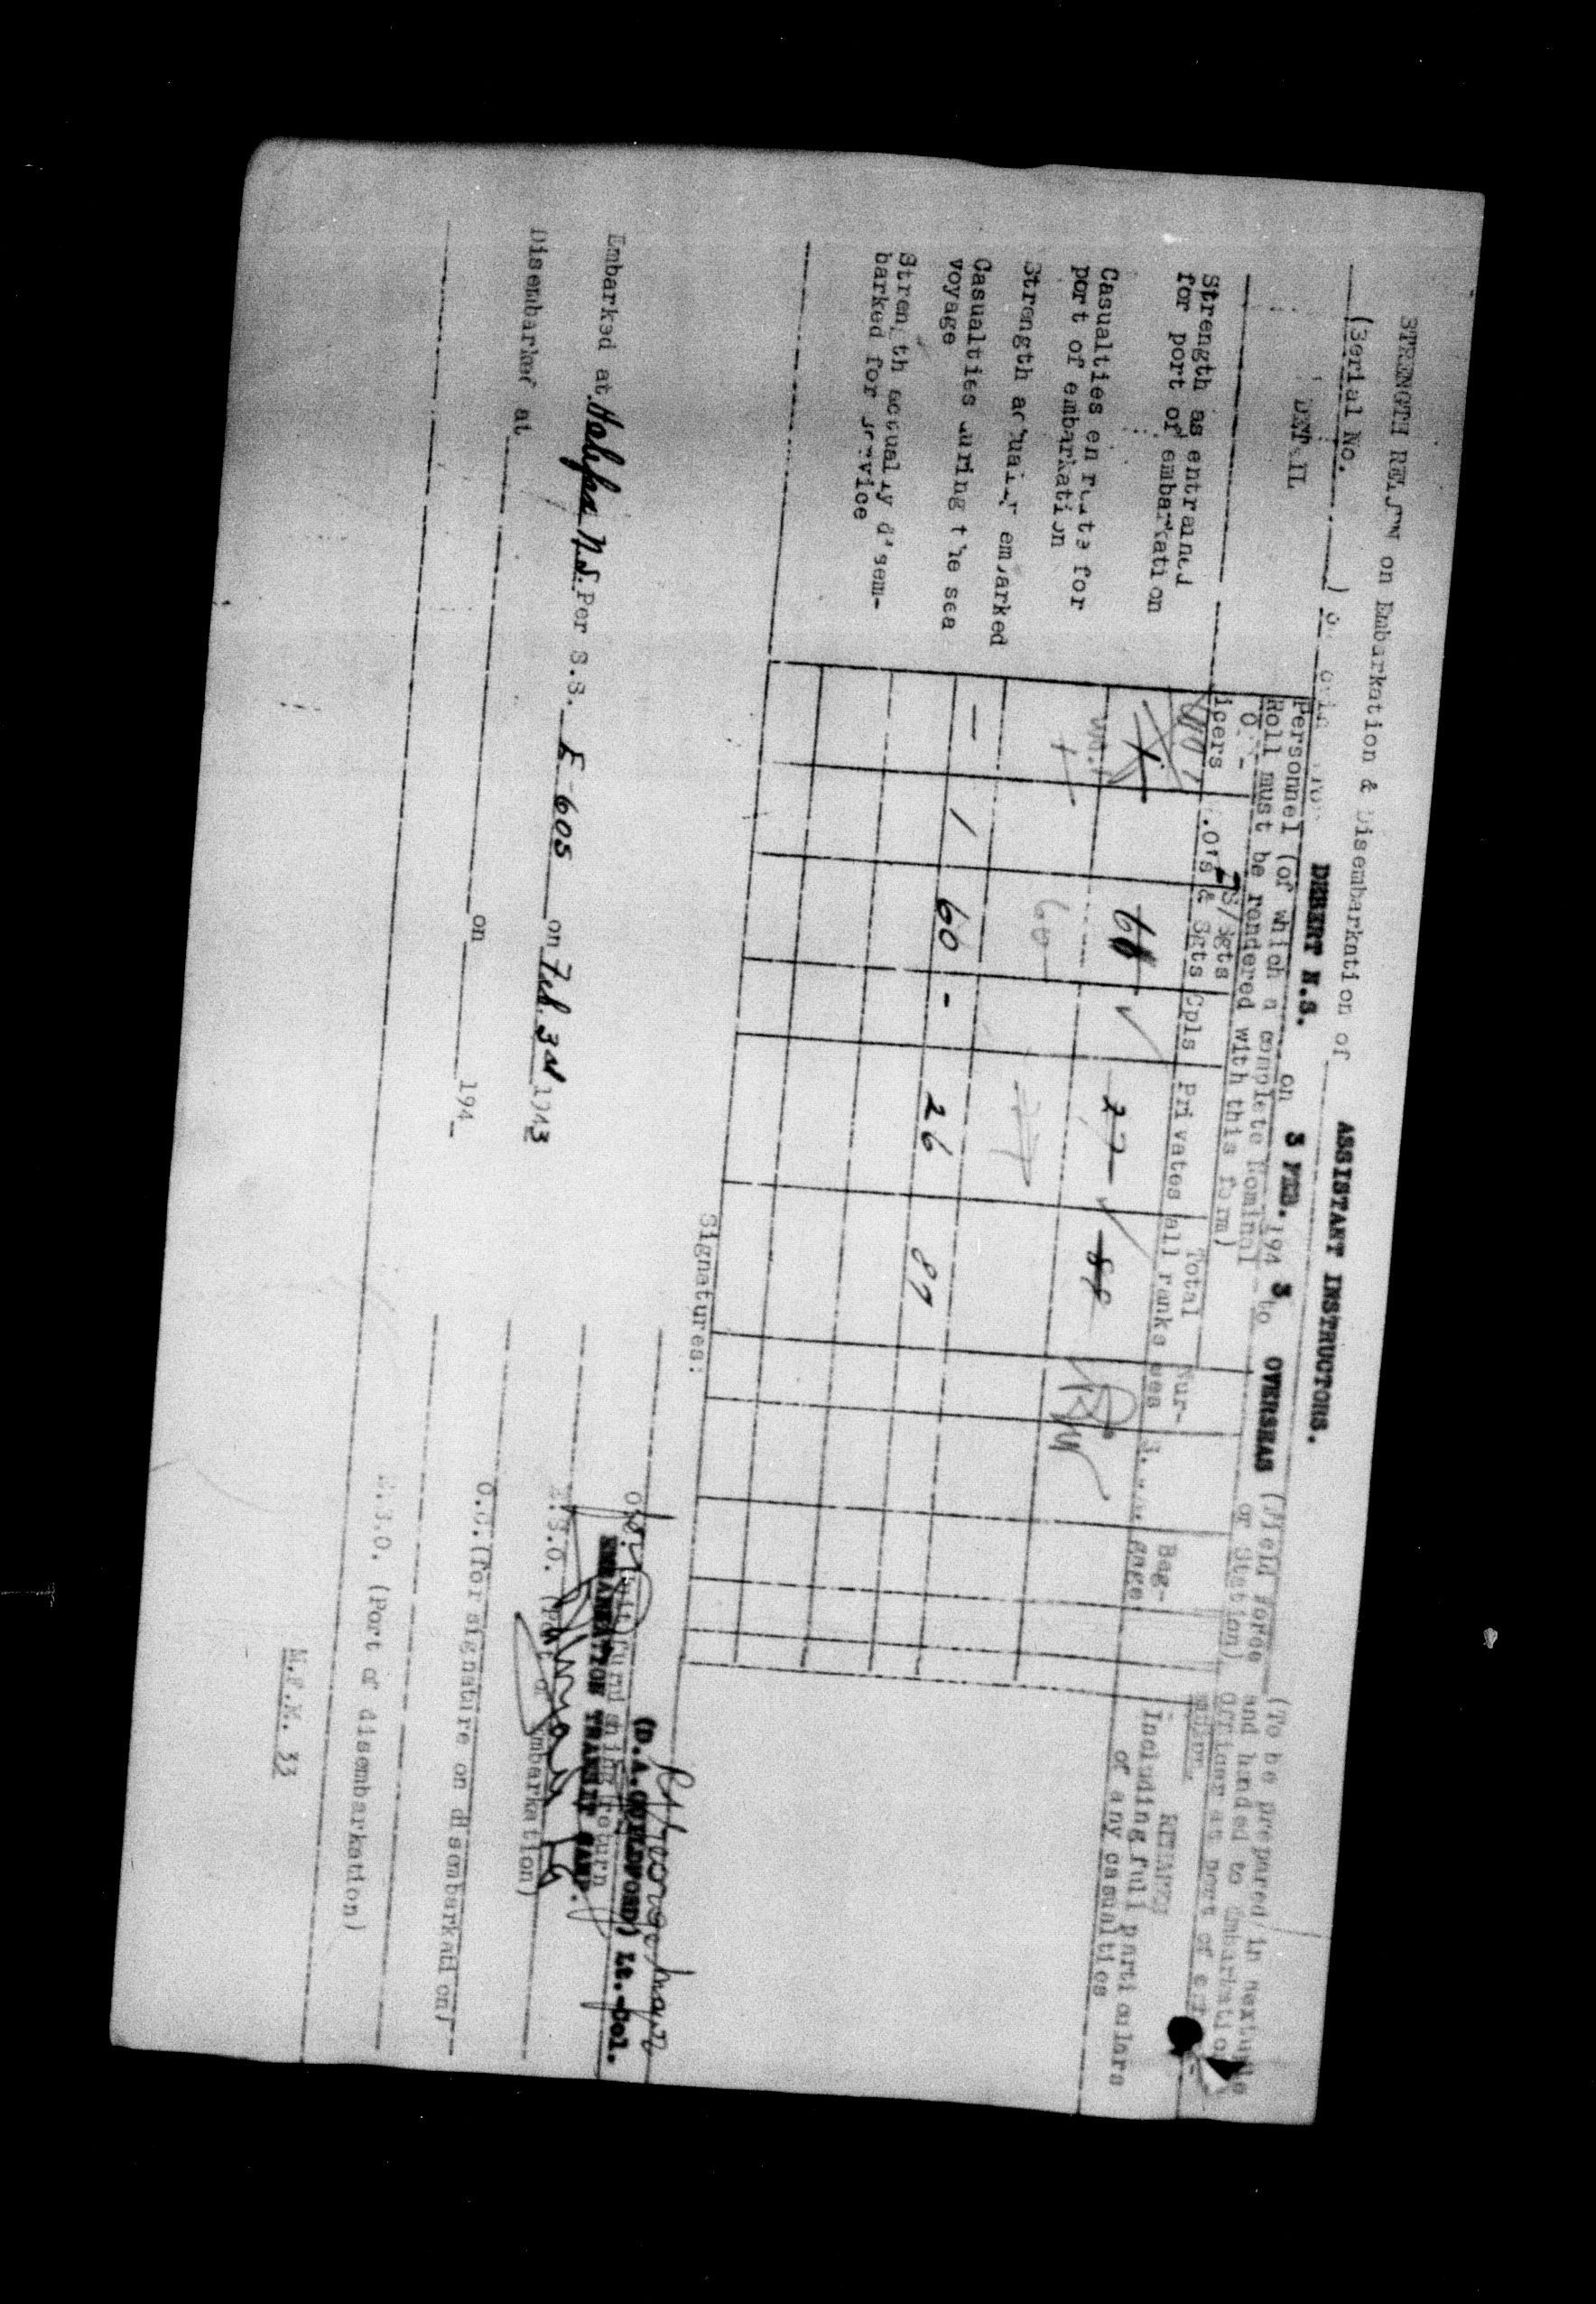 STRENGTH RETURN on Embarkation & Disembarkation of ASSISTANT INSTRUCTORS.
(Serial No. )
DEBERT N.S. on 3 FEB. 194 3 to OVERSEAS (Field Force or Station)
(To be prepared in
and handed to Embarkation
Officer at port of
DETAIL
Personnel (of which a complete Nominal
Roll must be rendered with this form)
S/Sgts
& Sgts
Cpls
Privates
Total
all ranks
Nur-
ses
Bag-
gage
REMARKS
Including full particulars
of any casualties
Strength as entrained
for port of embarkation
27
Casualties en route for
port of embarkation
60
Strength actually embarked
— 1 60 - 26 87
Casualties during the sea
voyage
Strength actually disem-
barked for service
Signatures:
(D.A. GUILDFORD) Lt.-Col.
EMBARKATION TRANSIT CAMP.
Embarked at Halifax N.S. Per S.S. E-605 on Feb. 3rd 1943
E.S.O. (Port of Embarkation)
Disembarked at on 194
O.C. (for signature on disembarkation)
(Port of disembarkation)
M.F.M. 33